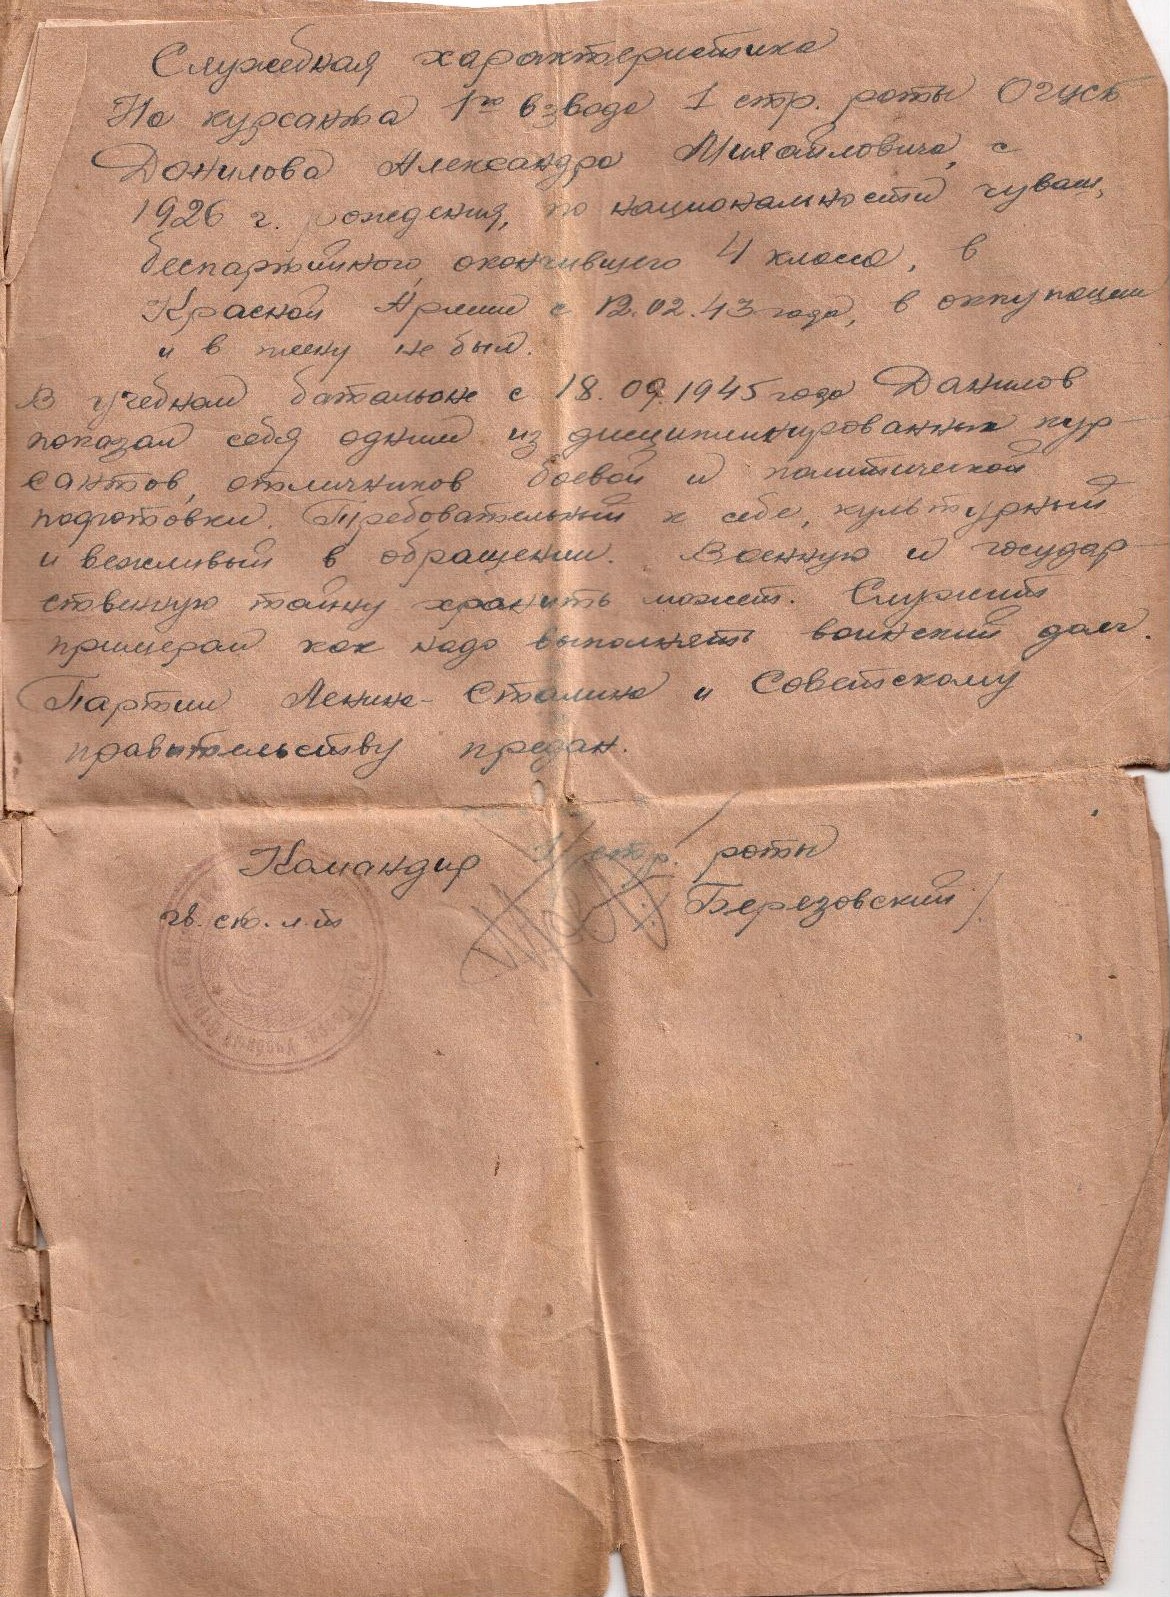 Служебная характеристика
На курсанта 1го взвода 1 стр. роты ОГУСБ
Данилова Александра Михайловича, с
1926 г. рождения, по национальности чуваш,
беспартийного, окончившего 4 класса, в
Красной Армии с 12.02.43 года, в оккупации
и в плену не был.
В учебном батальоне с 18.09.1945 года Данилов
показал себя одним из дисциплинированных кур-
сантов, отличников боевой и политической
подготовки. Требовательный к себе, культурный
и вежливый в обращении. Военную и государ-
ственную тайну хранить может. Служит
примером как надо выполнять воинский долг.
Партии Ленина-Сталина и Советскому
правительству предан.
Командир 1 стр. роты
гв. ст. л-т /Березовский/